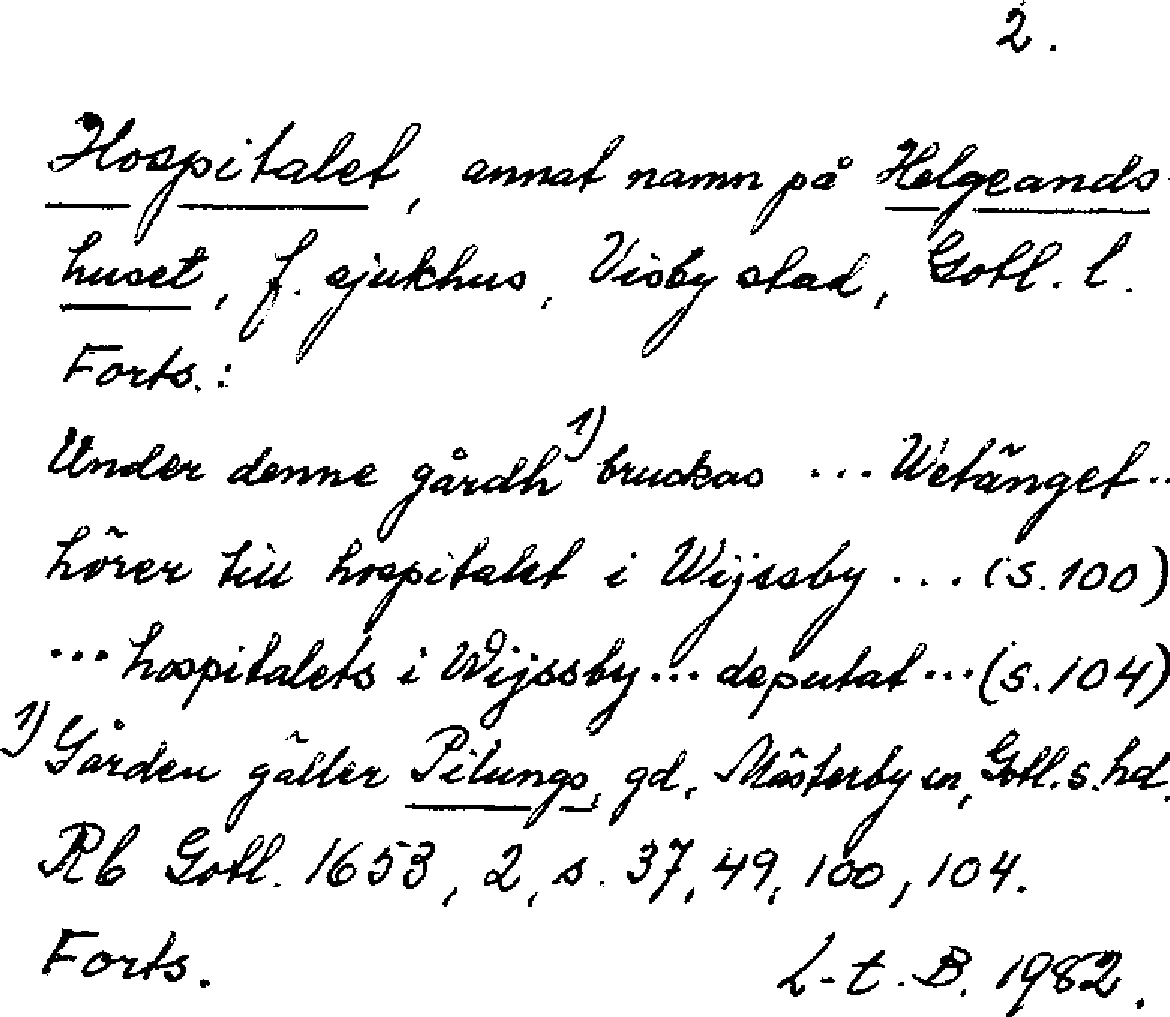 2.
Hospitalet, annat namn på Helgeands-
huset, f. sjukhus, Visby stad, Gotl. l.
Forts.:
Under denne gårdh 1) bruckas ... Wetänget ..
hörer till hospitalet i Wijssby ... (s. 100)
... hospitalets i Wijssby ... deputat ... (s. 104)
1) Gården gäller Pilungs, gd, Mästerby sn, Gotl. s. hd.
Rb Gotl. 1653, 2, s. 37, 49, 100, 104.
Forts.
L-t. B. 1982.